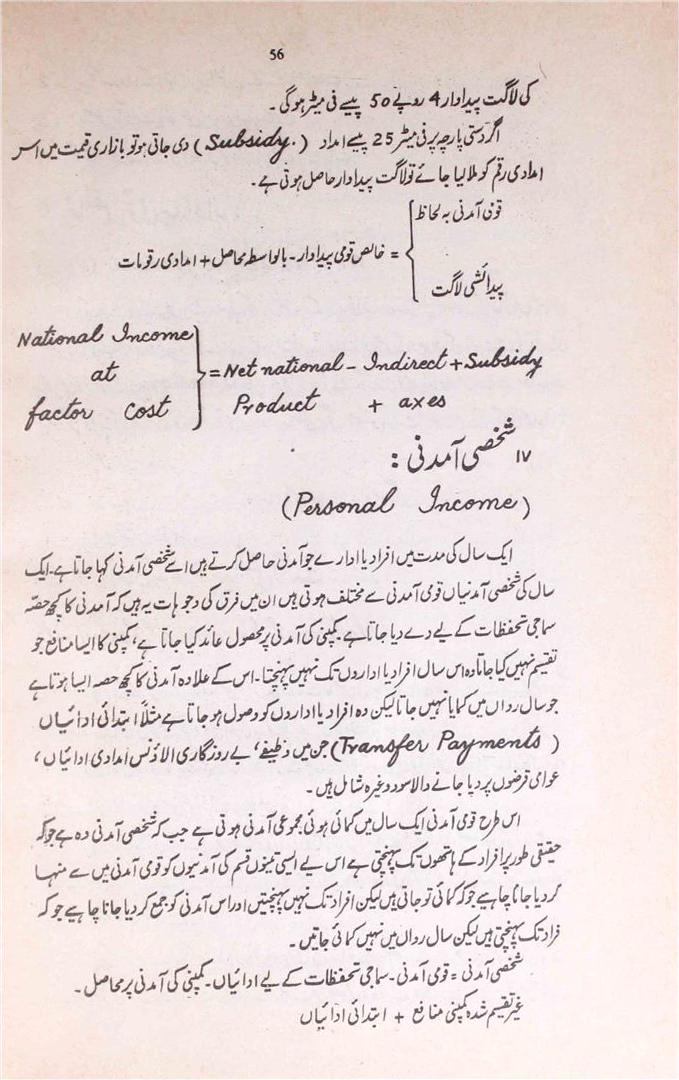 56
کی لاگت پیداوار 4 روپے 50 پیسے فی میٹر ہوگی۔
اگر دستی پارچہ پر فی میٹر 25 پیسے امداد (Subsidy.) دی جاتی ہو تو بازاری قیمت میں اس
امدادی رقم کو ملا لیا جائے تو لاگت پیداوار حاصل ہوتی ہے۔
قومی آمدنی بہ لحاظ
= خالص قومی پیداوار - بالواسطہ محاصل + امدادی رقومات
پیدائشی لاگت
National Income
at
factor cost
= Net national - Indirect + Subsidy
Product + axes
۱۷ شخصی آمدنی :
(Personal Income)
ایک سال کی مدت میں افراد یا ادارے جو آمدنی حاصل کرتے ہیں اسے شخصی آمدنی کہا جاتا ہے۔ ایک
سال کی شخصی آمدنیاں قومی آمدنی سے مختلف ہوتی ہیں ان میں فرق کی وجوہات یہ ہیں کہ آمدنی کا کچھ حصّہ
سماجی تحفظات کے لیے دے دیا جاتا ہے۔ کمپنی کی آمدنی پر محصول عائد کیا جاتا ہے، کمپنی کا ایسا منافع جو
تقسیم نہیں کیا جاتا وہ اس سال افراد یا اداروں تک نہیں پہنچتا۔ اس کے علاوہ آمدنی کا کچھ حصہ ایسا ہوتا ہے
جو سال رواں میں کمایا نہیں جاتا لیکن وہ افراد یا اداروں کو وصول ہو جاتا ہے مثلاً ابتدائی ادائیاں
(Transfer Payments) جن میں وظیفے، بے روزگاری الاؤنس امدادی ادائیاں،
عوامی قرضوں پر دیا جانے والا سود وغیرہ شامل ہیں۔
اس طرح قومی آمدنی ایک سال میں کمائی ہوئی مجموعی آمدنی ہوتی ہے جب کہ شخصی آمدنی وہ ہے جو کہ
حقیقی طور پر افراد کے ہاتھوں تک پہنچتی ہے اس لیے ایسی تینوں قسم کی آمدنیوں کو قومی آمدنی میں سے منہا
کر دیا جانا چاہیے جو کہ کمائی تو جاتی ہیں لیکن افراد تک نہیں پہنچتیں اور اس آمدنی کو جمع کر دیا جانا چاہیے جو کہ
فراد تک پہنچتی ہیں لیکن سال رواں میں نہیں کمائی جاتیں۔
شخصی آمدنی = قومی آمدنی - سماجی تحفظات کے لیے ادائیاں - کمپنی کی آمدنی پر محاصل -
غیر تقسیم شدہ کمپنی منافع + ابتدائی ادائیاں